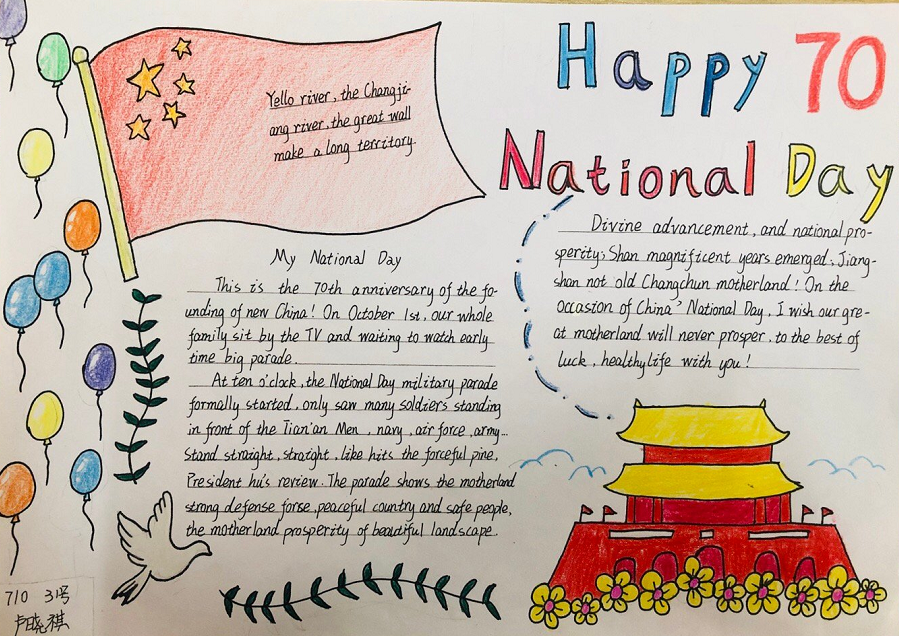 Happy 70
National Day
Yello river, the Changji-
ang river, the great wall
make a long territory.
My National Day
This is the 70th anniversary of the fo-
unding of new China! On October 1st, our whole
family sit by the TV and waiting to watch early
time big parade.
At ten o'clock, the National Day military parade
formally started, only saw many soldiers standing
in front of the Tian'an Men, navy, air force, army...
Stand straight, straight, like hits the forceful pine,
President hu's review. The parade shows the motherland
strong defense forse, peaceful country and safe people,
the motherland prosperity of beautiful landscape.
Divine advancement, and national pro-
sperity; Shan magnificent years emerged, Jiang-
shan not old Changchun motherland! On the
occasion of China' National Day, I wish our gre-
at motherland will never prosper, to the best of
luck, healthy life with you!
710 31号
卢晓祺